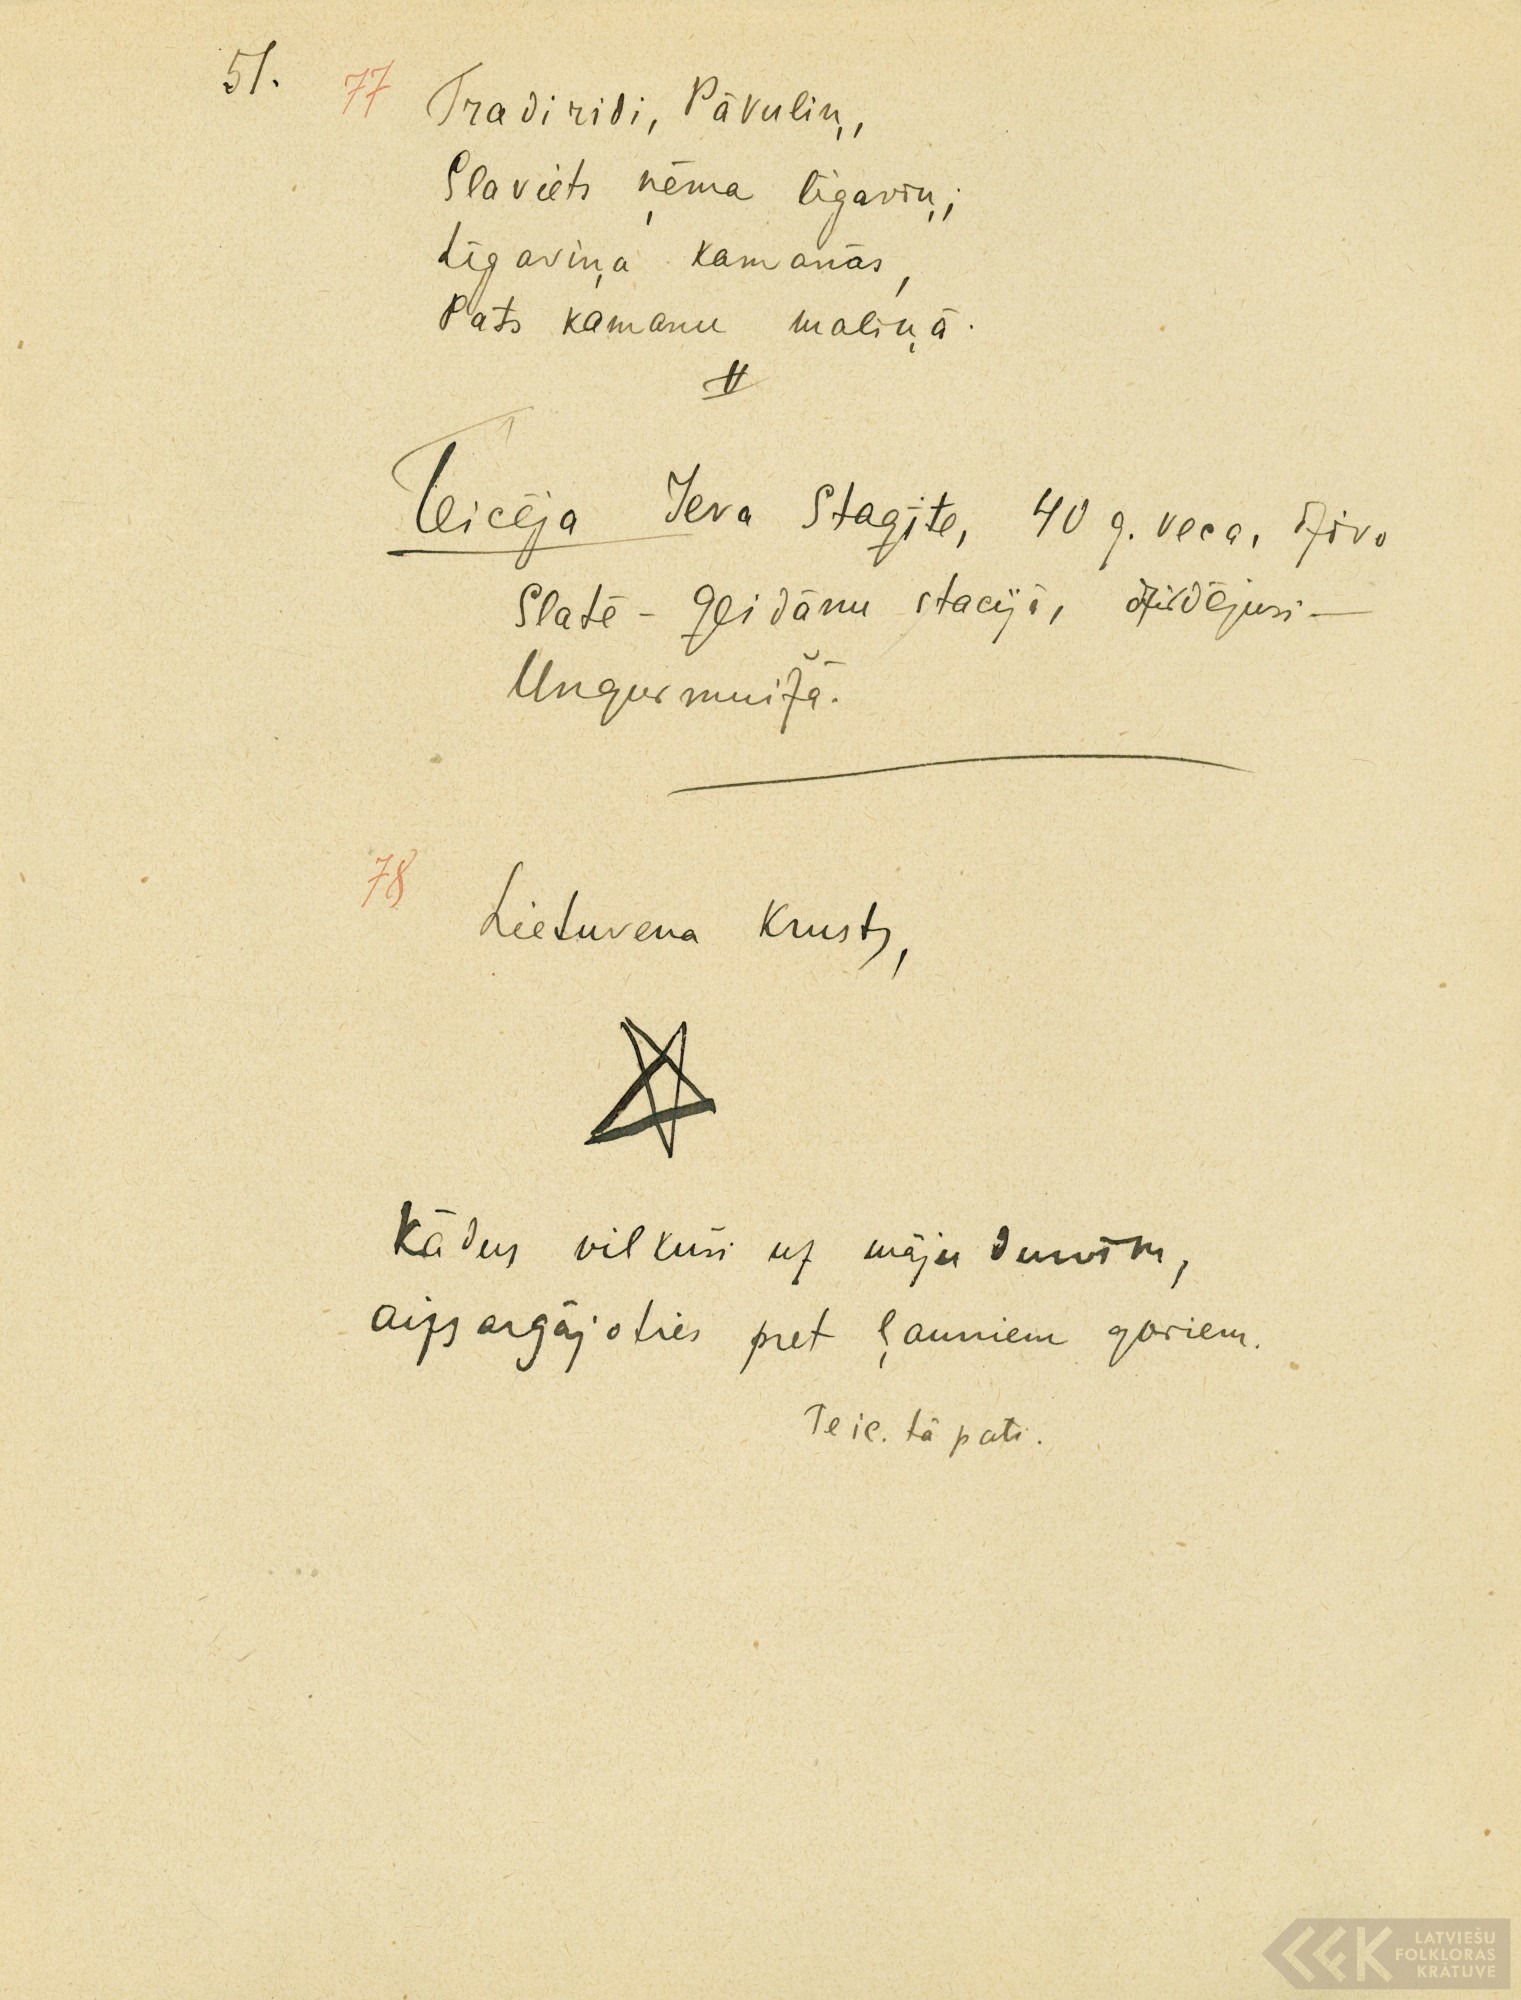 51. 77 Tradiridi, Pāvuliņ,
Slaviets ņēma līgaviņ;
Līgaviņa kamanās,
Pats kamanu maliņā.
Teicēja Ieva Stagīte, 40 g. veca, dzīvo
Slatē - geidānu stacijā, dzirdējusi —
Ungurmuižā.
78 Lietuvena Krusts,
Kādus vilkuši uz māju durvīm,
aizsargājoties pret ļauniem gariem.
Teic. tā pati.
LATVIEŠU
FOLKLORAS
KRĀTUVE